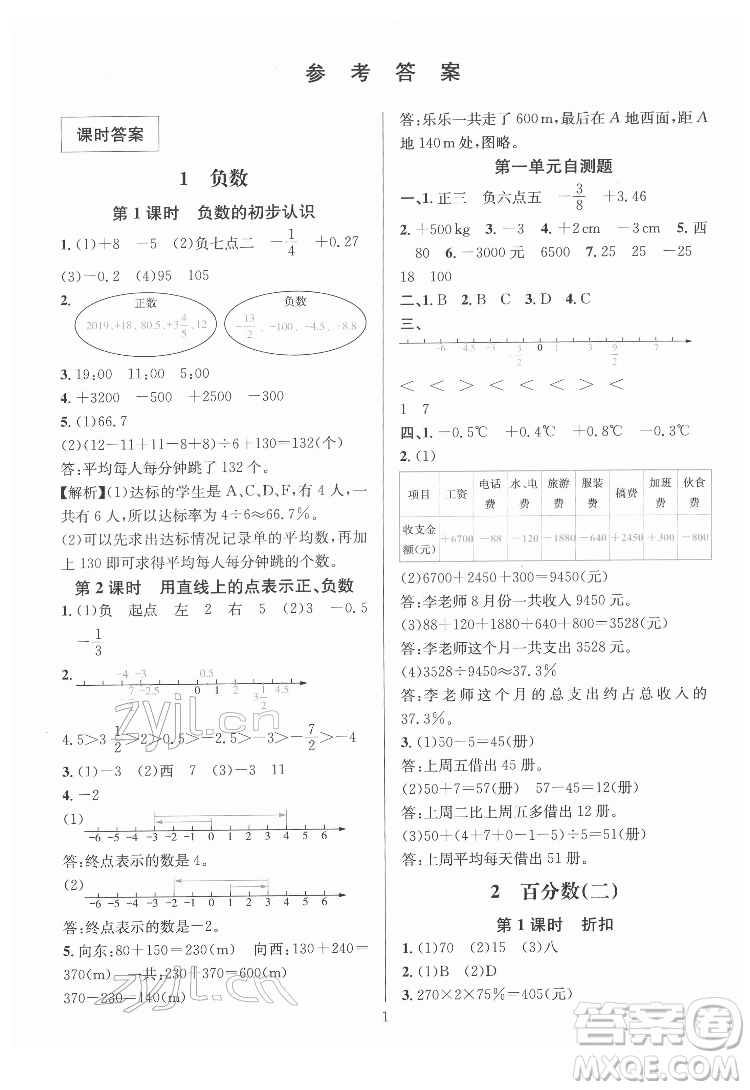 参 考 答 案
课时答案
1 负数
第 1 课时 负数的初步认识
1. (1)+8 -5 (2)负七点二 -1/4 +0.27
(3)-0.2 (4)95 105
2.
正数
2019,+18,80.5,+3 4/5,12
负数
-13/2,-100,-4.5,-8.8
3. 19:00 11:00 5:00
4. +3200 -500 -2000
5. (1)66.7
(2)(12-11+12-8+9-2)÷6+130=132(个)
答:平均每人每分钟跳了 132 个。
【解析】(1)达标的学生是 A、C、D、F,有 4 人,一
共有 6 人,所以达标率为 4÷6≈66.7%。
(2)可以先求出达标情况记录单的平均数,再加
上 130 即可求得平均每分钟跳的个数。
第 2 课时 用直线上的点表示正、负数
1. (1)负 起点 左 2 右 5 (2)3 -0.5
-1/3
2.
-4 -3 0.5
-7/2 -2.5 0 1 3 1/2 4.5
4.5>3 1/2>0.5>-2.5>-3>-7/2>-4
3. (1)-3 (2)西 +30 -30 (3)-3 +11
4. -2
(1)
-6 -5 -4 -3 -2 -1 0 1 2 3 4 5 6
答:终点表示的数是 4。
(2)
-6 -5 -4 -3 -2 -1 0 1 2 3 4 5 6
答:终点表示的数是-2。
5. 向东:80+150=230(m) 向西:310+60=
370(m) 一共:230+370=600(m)
370-230=140(m)
答:乐乐一共走了 600 m,最后在 A 地西面,距 A
地 140 m 处,图略。
第一单元自测题
一、1. 正三 负六点五 -3/8 +3.46
2. +500kg 3. -3 4. +2cm -2cm 5. 西
80 6. -3000元 6500 7. 25 25 -25
18 100
二、1. B 2. B C 3. D 4. C
三、
-6 -4.5 -3 0 3 9/2 7
< < > < < > <
1 7
四、1. -0.5℃ +0.4℃ -0.5℃
2. (1)
项目 工资 电话费 水、电费 旅游费 服装费 稿费 加班费 伙食费
收支金额(元) +6700 -88 -120 -1880 -640 +2450 +300 -800
(2)6700+2450+300=9450(元)
答:李老师 8 月份一共收入 9450 元。
(3)88+120+1880+640+800=3528(元)
答:李老师这个月一共支出 3528 元。
(4)3528÷9450≈37.3%
答:李老师这个月的总支出约占总收入的
37.3%。
3. (1)50-5=45(册)
答:上周五借出 45 册。
(2)50+7=57(册) 57-45=12(册)
答:上周二比上周五多借出 12 册。
(3)50+(4+7+0-1-5)÷5=51(册)
答:上周平均每天借出 51 册。
2 百分数(二)
第 1 课时 折扣
1. (1)70 (2)15 (3)八
2. (1)B (2)D
3. 270×2×75%=405(元)
1
zyjl.cn
zyjl.cn
答案圈
MXQE.COM